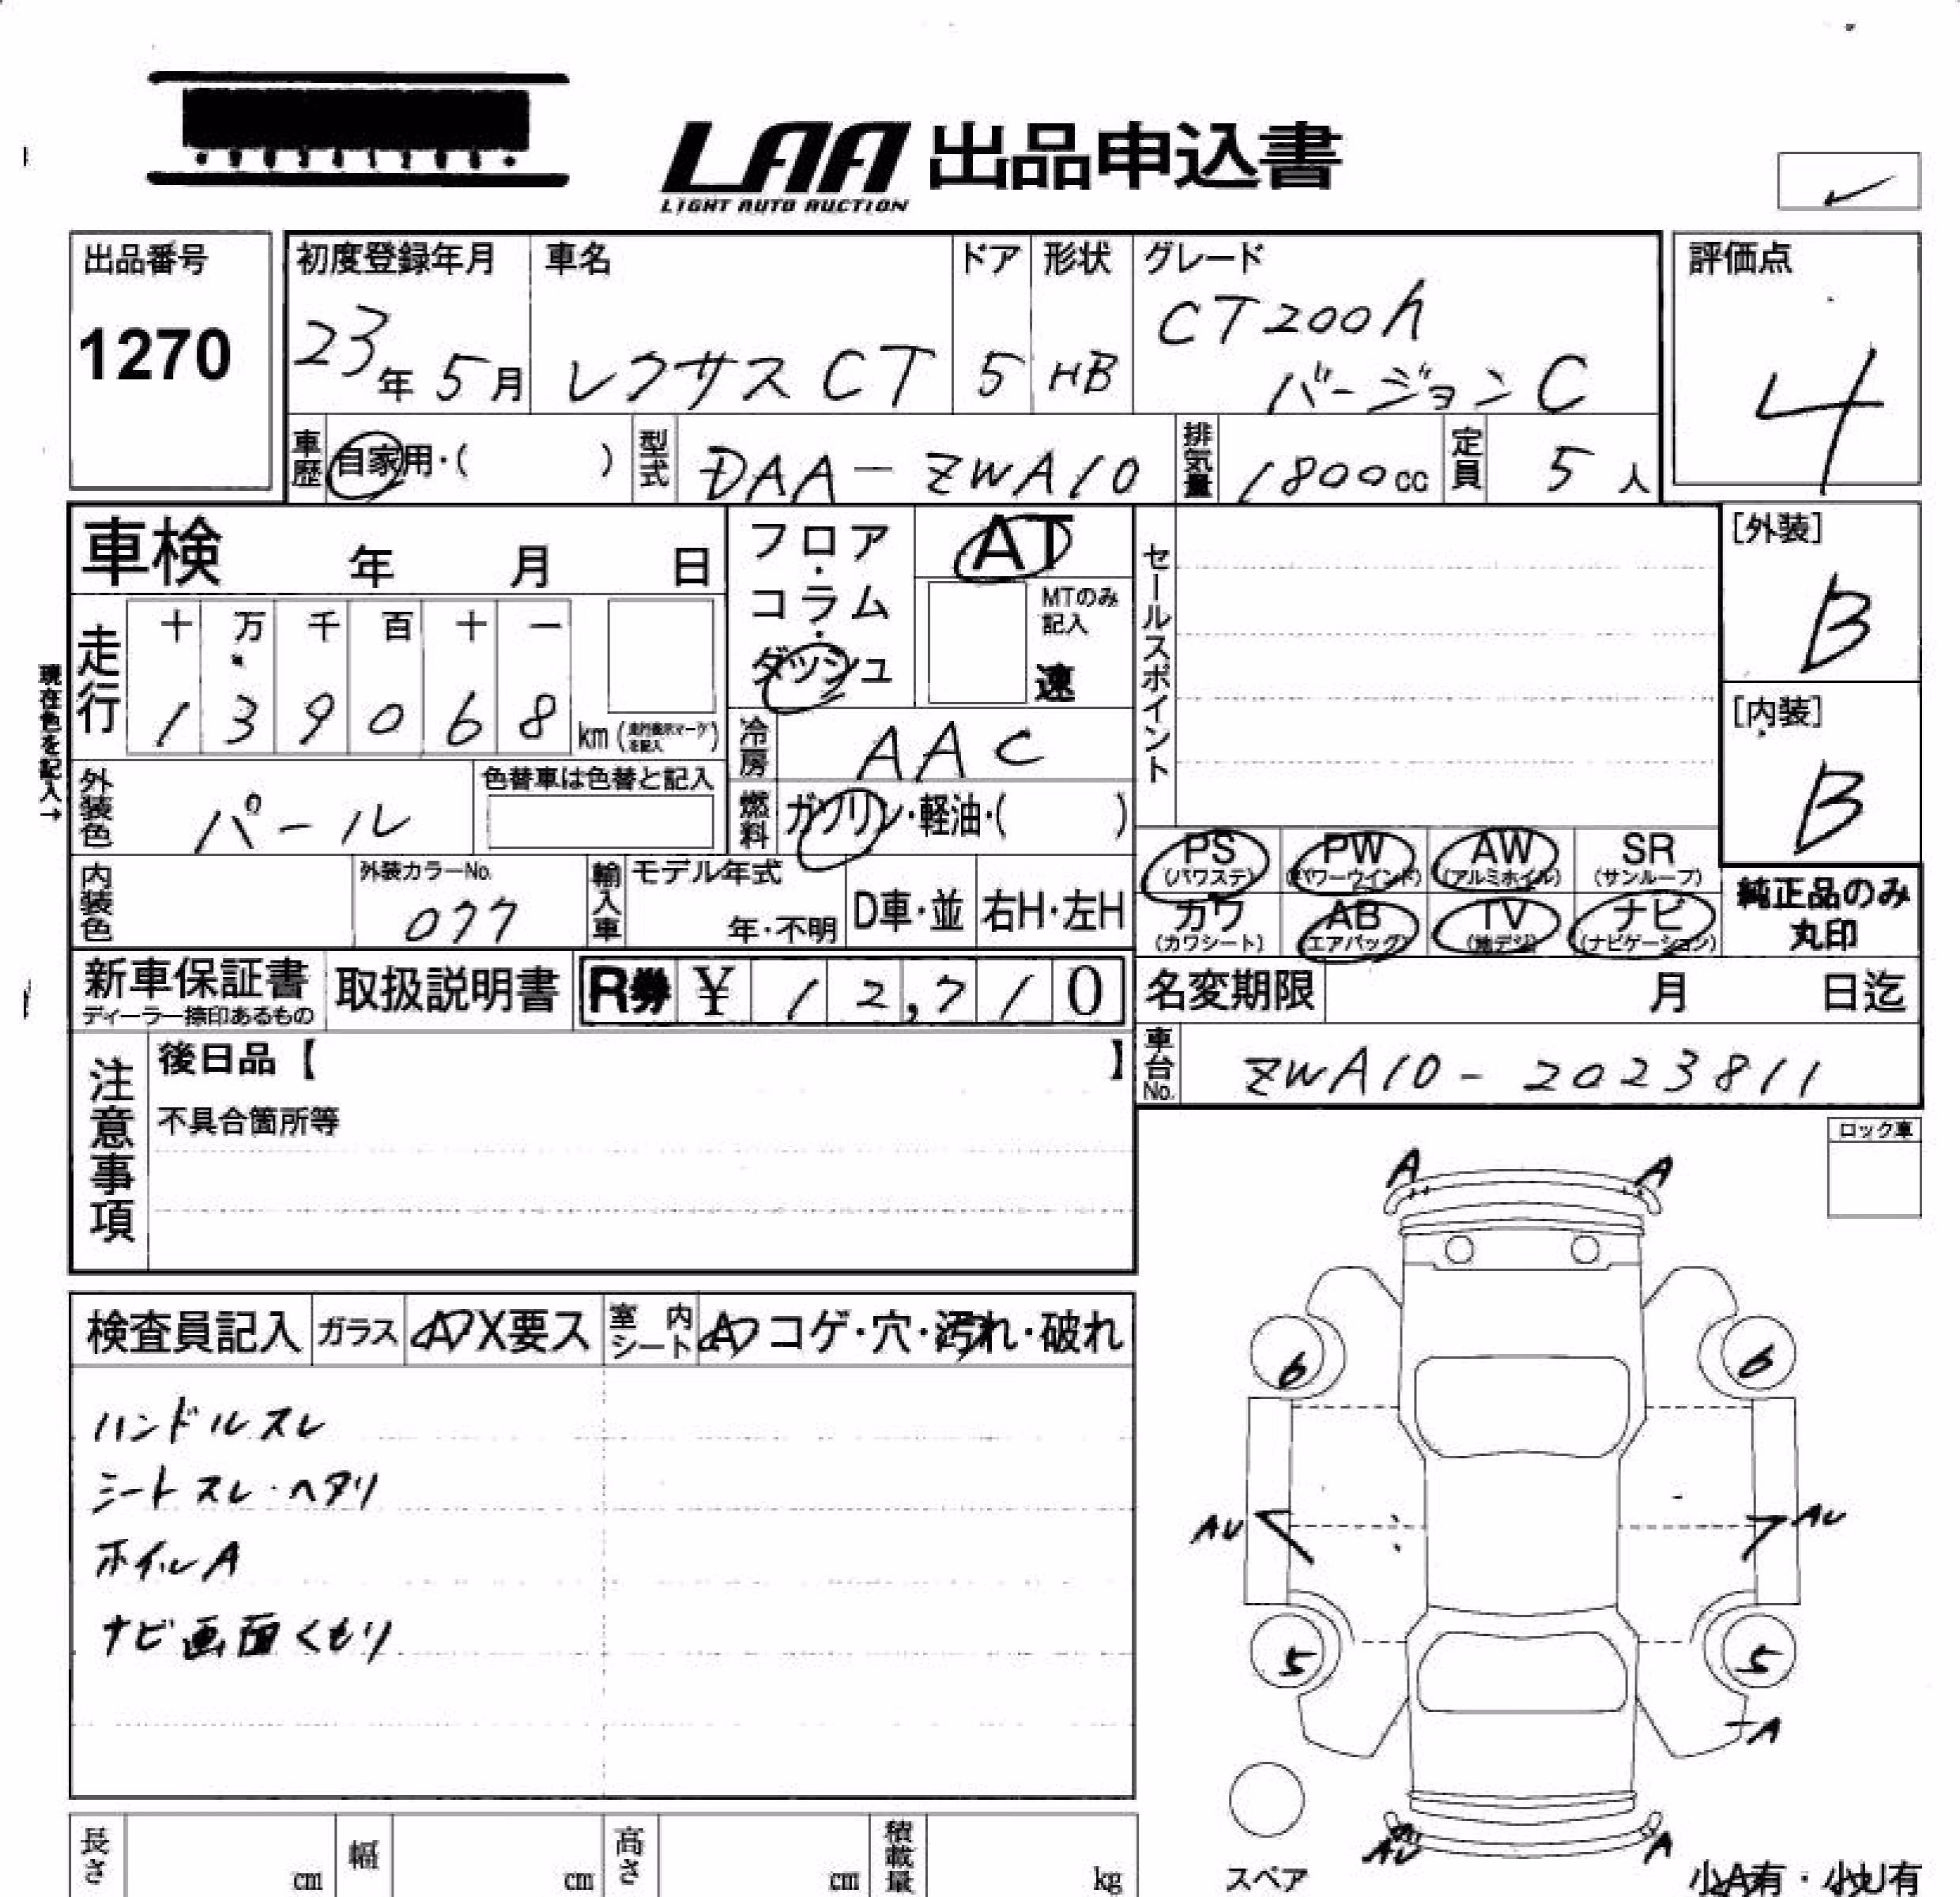 LAA 出品申込書
LIGHT AUTO AUCTION
出品番号
1270
初度登録年月
23年 5月
車名
レクサス CT
ドア
5
形状
HB
グレード
CT200h
バージョンC
評価点
4
車歴 自家用・( )
型式 DAA-ZWA10
排気量 1800cc
定員 5人
車検 年 月 日
フロア・コラム・ダッシュ
AT
MTのみ記入
速
セールスポイント
[外装]
B
現在色を記入→
走行
十 万 千 百 十 一
1 3 9 0 6 8 km
冷房 AAC
[内装]
B
外装色 パール
色替車は色替と記入
燃料 ガソリン・軽油・( )
内装色
外装カラーNo.
077
輸入車
モデル年式
年・不明
D車・並
右H・左H
PS (パワステ)
PW (パワーウインド)
AW (アルミホイル)
SR (サンルーフ)
カワ (カワシート)
AB (エアバッグ)
TV (地デジ)
ナビ (ナビゲーション)
純正品のみ
丸印
新車保証書
ディーラー捺印あるもの
取扱説明書
R券 ¥ 12,710
名変期限 月 日迄
車台No. ZWA10-2023811
注意事項
後日品【 】
不具合箇所等
ロック車
A A
検査員記入
ガラス A X要ス
室内シート A コゲ・穴・汚れ・破れ
6 6
ハンドルスレ
シートスレ・ヘタリ
AU AU
ホイルA
ナビ画面くもり
5 5
A
AU A
スペア
小A有・小U有
長さ cm
幅 cm
高さ cm
積載量 kg